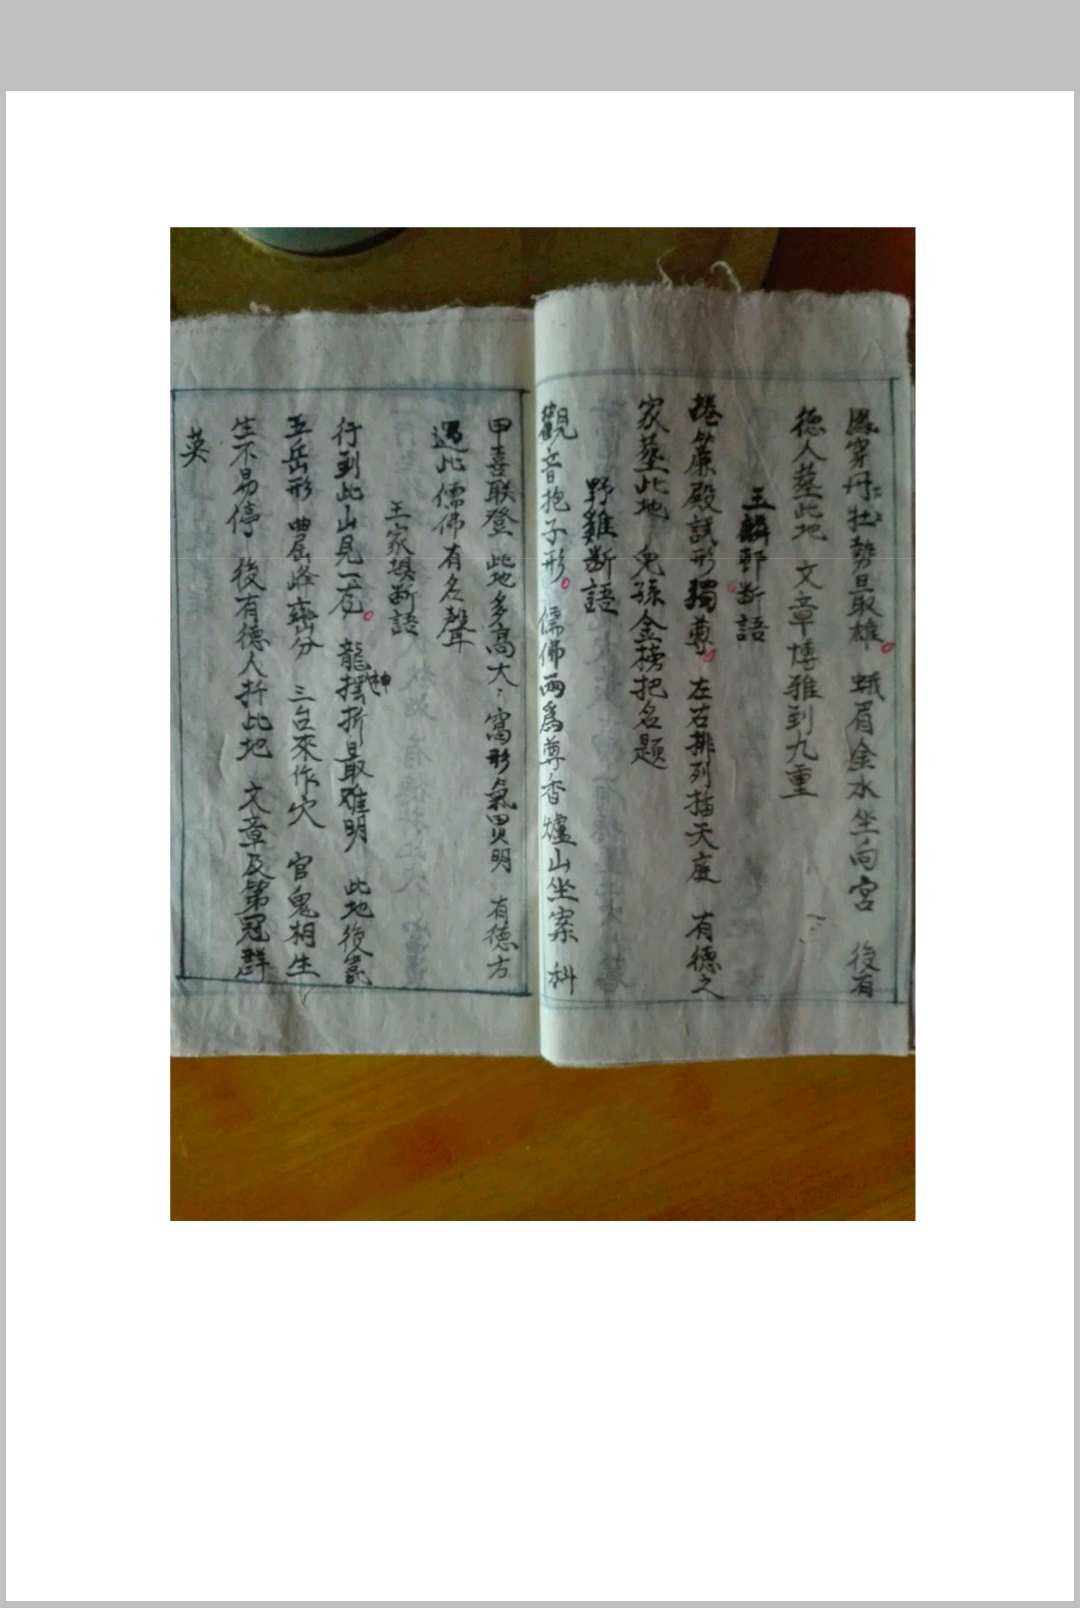 鳳穿丹牡勢最雄。蛾眉金水坐向宮 後有
德人葬此地 文章博雅到九重
玉麟郵断語
捲簾殿試形獨尊。左右排列描天庭 有德之
家葬此地 兒孫金榜把名題
野雞断語
觀音抱子形。儒佛兩為尊香爐山坐案 科
甲喜联登 此地多高大、窩形氣貫明 有德方
遇此儒佛有名聲
王家埧断語
行到此山見一砲。龍神擺折最难明 此地後
五岳形 曲屈峰巒分 三台來作穴 官鬼相生
生不易停 後有德人扦此地 文章及第冠群
英